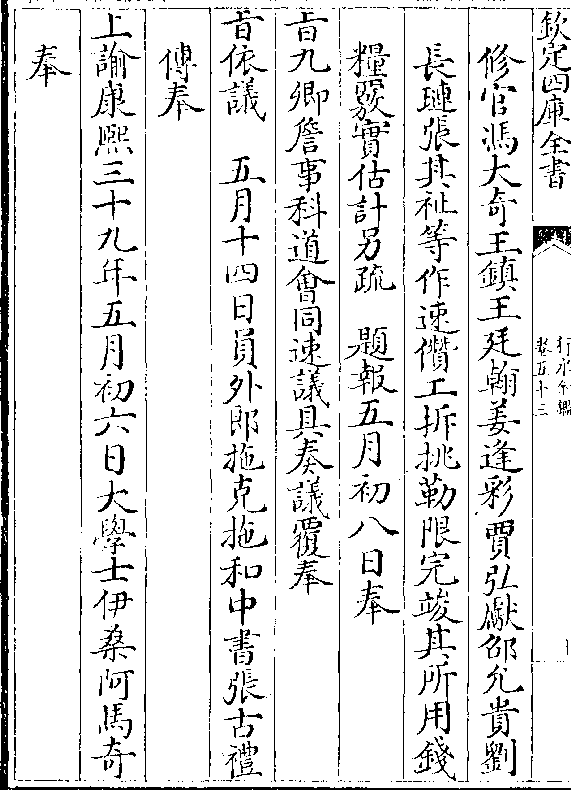 欽定四庫全書
行水金鑑
卷五十三
修官馮大奇王鎮王廷翰姜逢彩賈弘猷邵允貴劉
長璉張其祉等作速儹工拆挑勒限完竣其所用錢
糧覈實估計另疏　題報五月初八日奉
旨九卿詹事科道會同速議具奏議覆奉
旨依議　五月十四日員外郎拖克拖和中書張古禮
傳奉
上諭康熙三十九年五月初六日大學士伊桑阿馬奇
奉